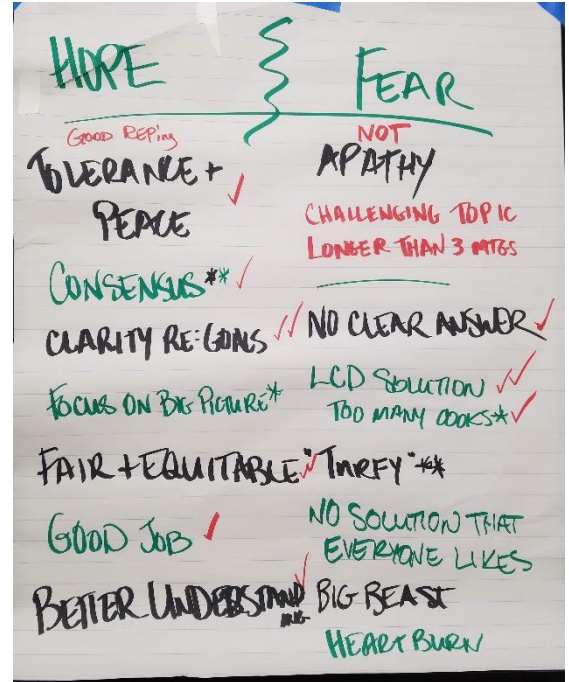 HOPE
FEAR
GOOD REP'ing
TOLERANCE +
PEACE
CONSENSUS**
CLARITY RE: GOALS
FOCUS ON BIG PICTURE*
FAIR + EQUITABLE
GOOD JOB
BETTER UNDERSTAND
NOT
APATHY
CHALLENGING TOPIC
LONGER THAN 3 MTGS
NO CLEAR ANSWER
LCD SOLUTION
TOO MANY COOKS*
"TURFY"**
NO SOLUTION THAT
EVERYONE LIKES
BIG BEAST
HEARTBURN